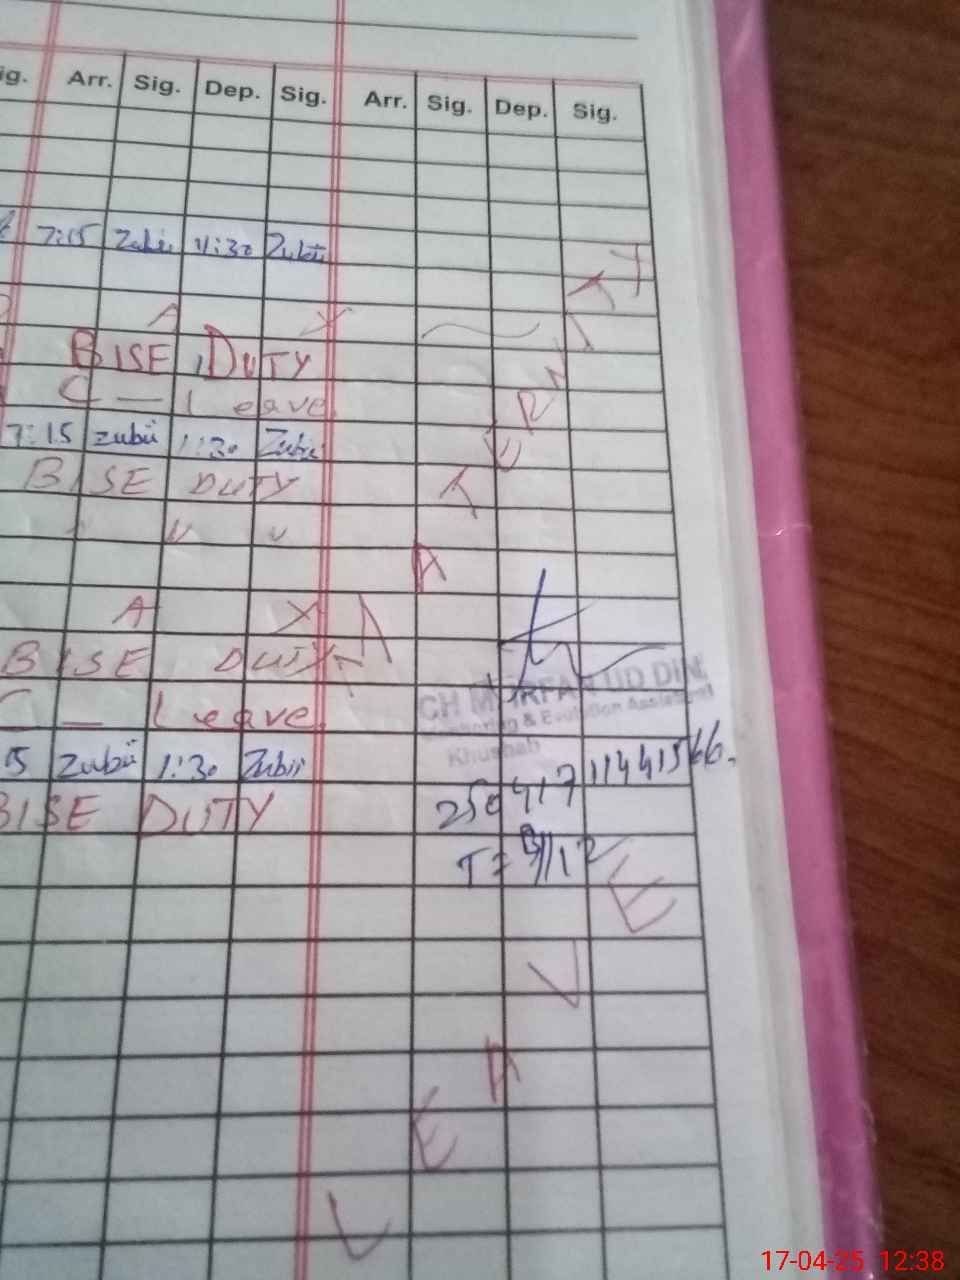 ig. Arr. Sig. Dep. Sig. Arr. Sig. Dep. Sig.
7:15 Zubii 11:30 Zubii
A X
BISE DUTY
C — Leave
7:15 zubii 1:30 Zubii
BISE DUTY
A X
BISE DUTY
C — Leave
15 Zubii 1:30 Zubii
BISE DUTY
MATERNITY
CH M IRFAN UD DIN
Monitoring & Evolution Assistant
Khushab
25041711441566.
LEAVE
17-04-25 12:38